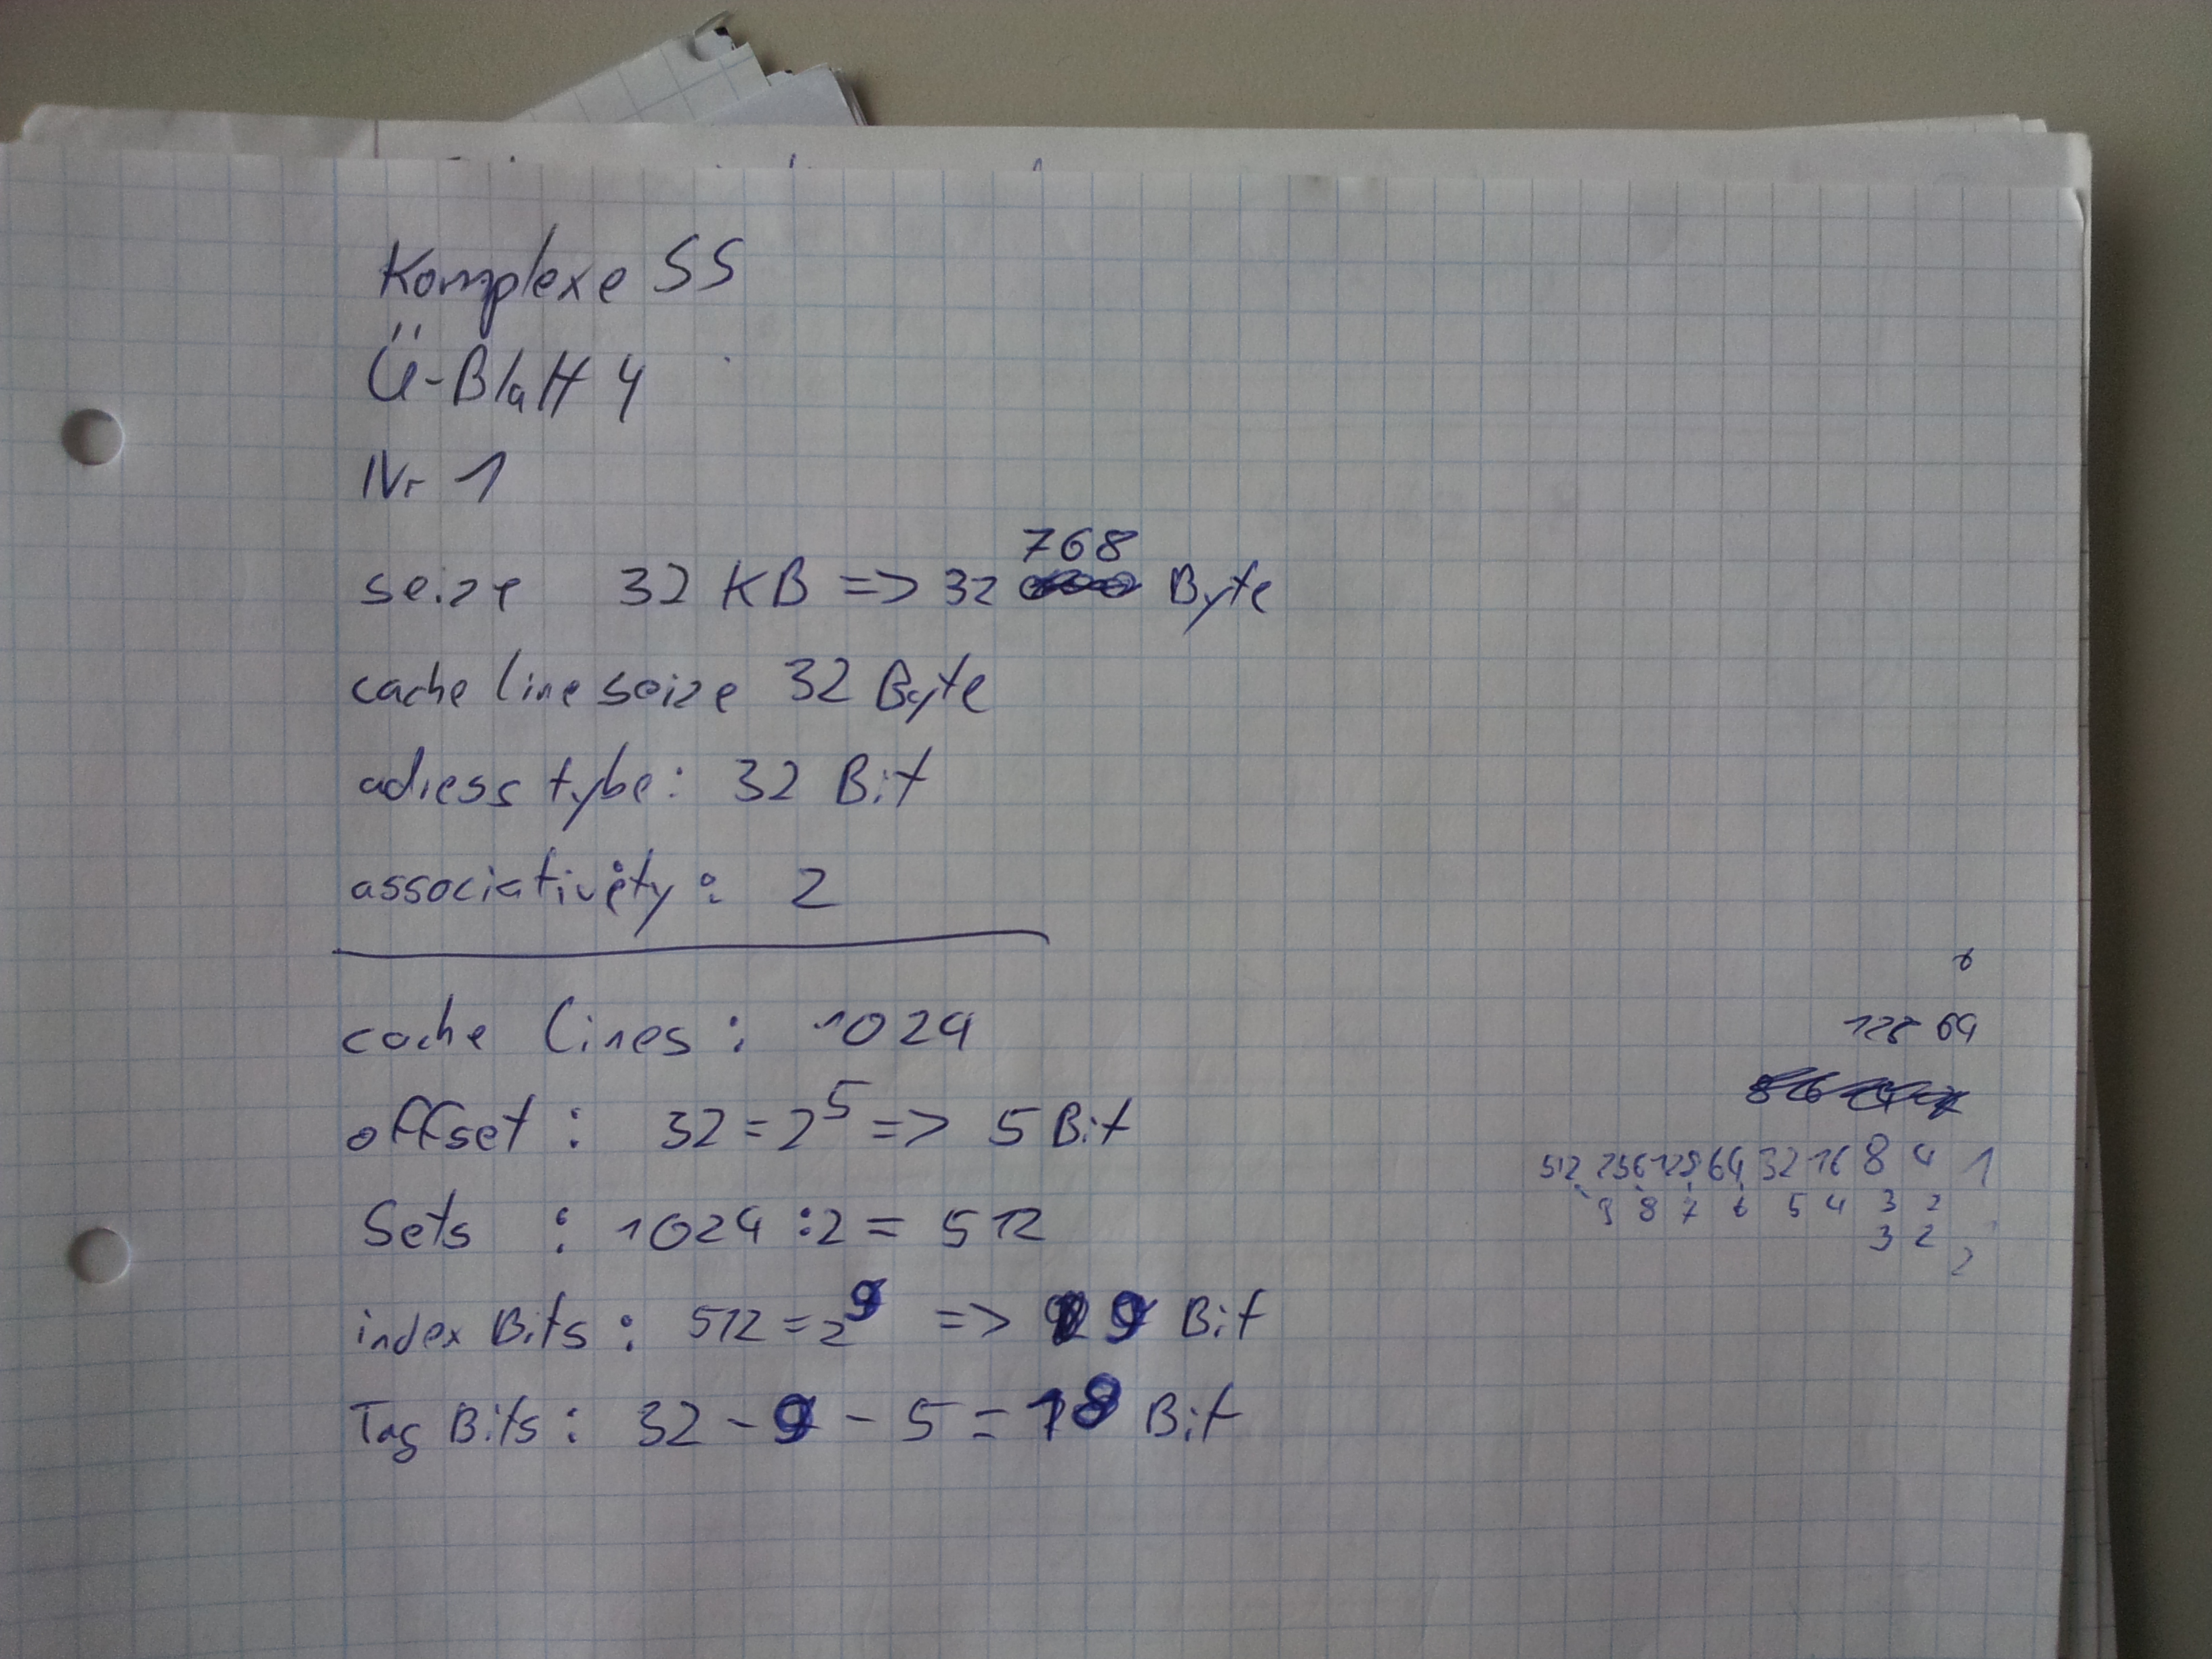 Komplexe SS
Ü-Blatt 4
Nr 1
768
seize 32 KB => 32 Byte
cache line seize 32 Byte
adress tybe: 32 Bit
associativity: 2
cache lines: 1024
offset : 32 = 2^5 => 5 Bit
Sets : 1024 : 2 = 512
index Bits : 512 = 2^9 => 9 Bit
Tag Bits : 32 - 9 - 5 = 18 Bit
6
128 64
512 256 128 64 32 16 8 4 1
9 8 7 6 5 4 3 2
3 2
2